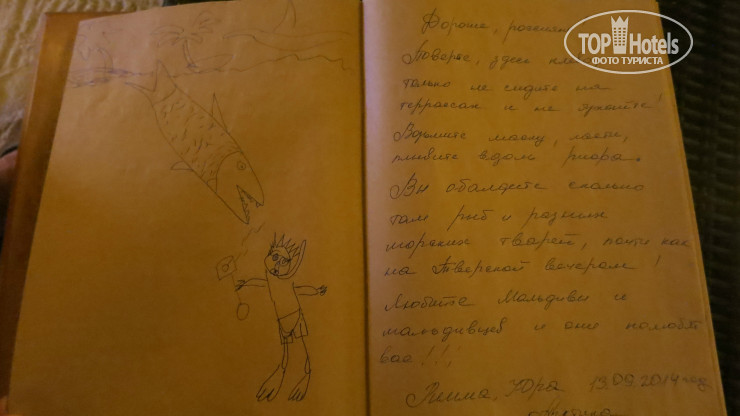 TOP Hotels
ФОТО ТУРИСТА
Дорогие,
Поверьте, здесь
только не сидите на
террасах и не
Возьмите маску, ласты,
плывите вдоль рифа.
Вы обалдеете сколько
там рыб и разных
морских тварей, почти как
на Тверской вечером!
Любите Мальдивы и
мальдивцев и они полюбят
вас!!!,
Юра 13.09.2014